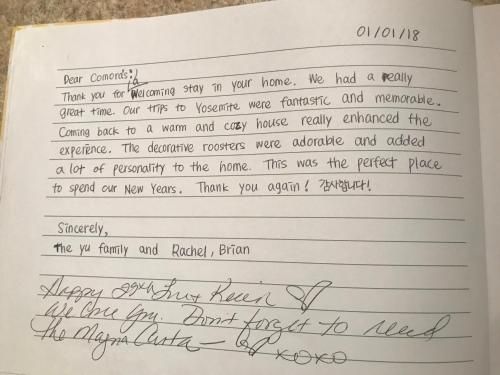 01/01/18
Dear Comord's:
Thank you for a welcoming stay in your home. We had a really
great time. Our trips to Yosemite were fantastic and memorable.
Coming back to a warm and cozy house really enhanced the
experience. The decorative roosters were adorable and added
a lot of personality to the home. This was the perfect place
to spend our New Years. Thank you again! 감사합니다!
Sincerely,
The yu family and Rachel, Brian
Happy
We love you. Don't forget to read
The Magna Carta — xoxo